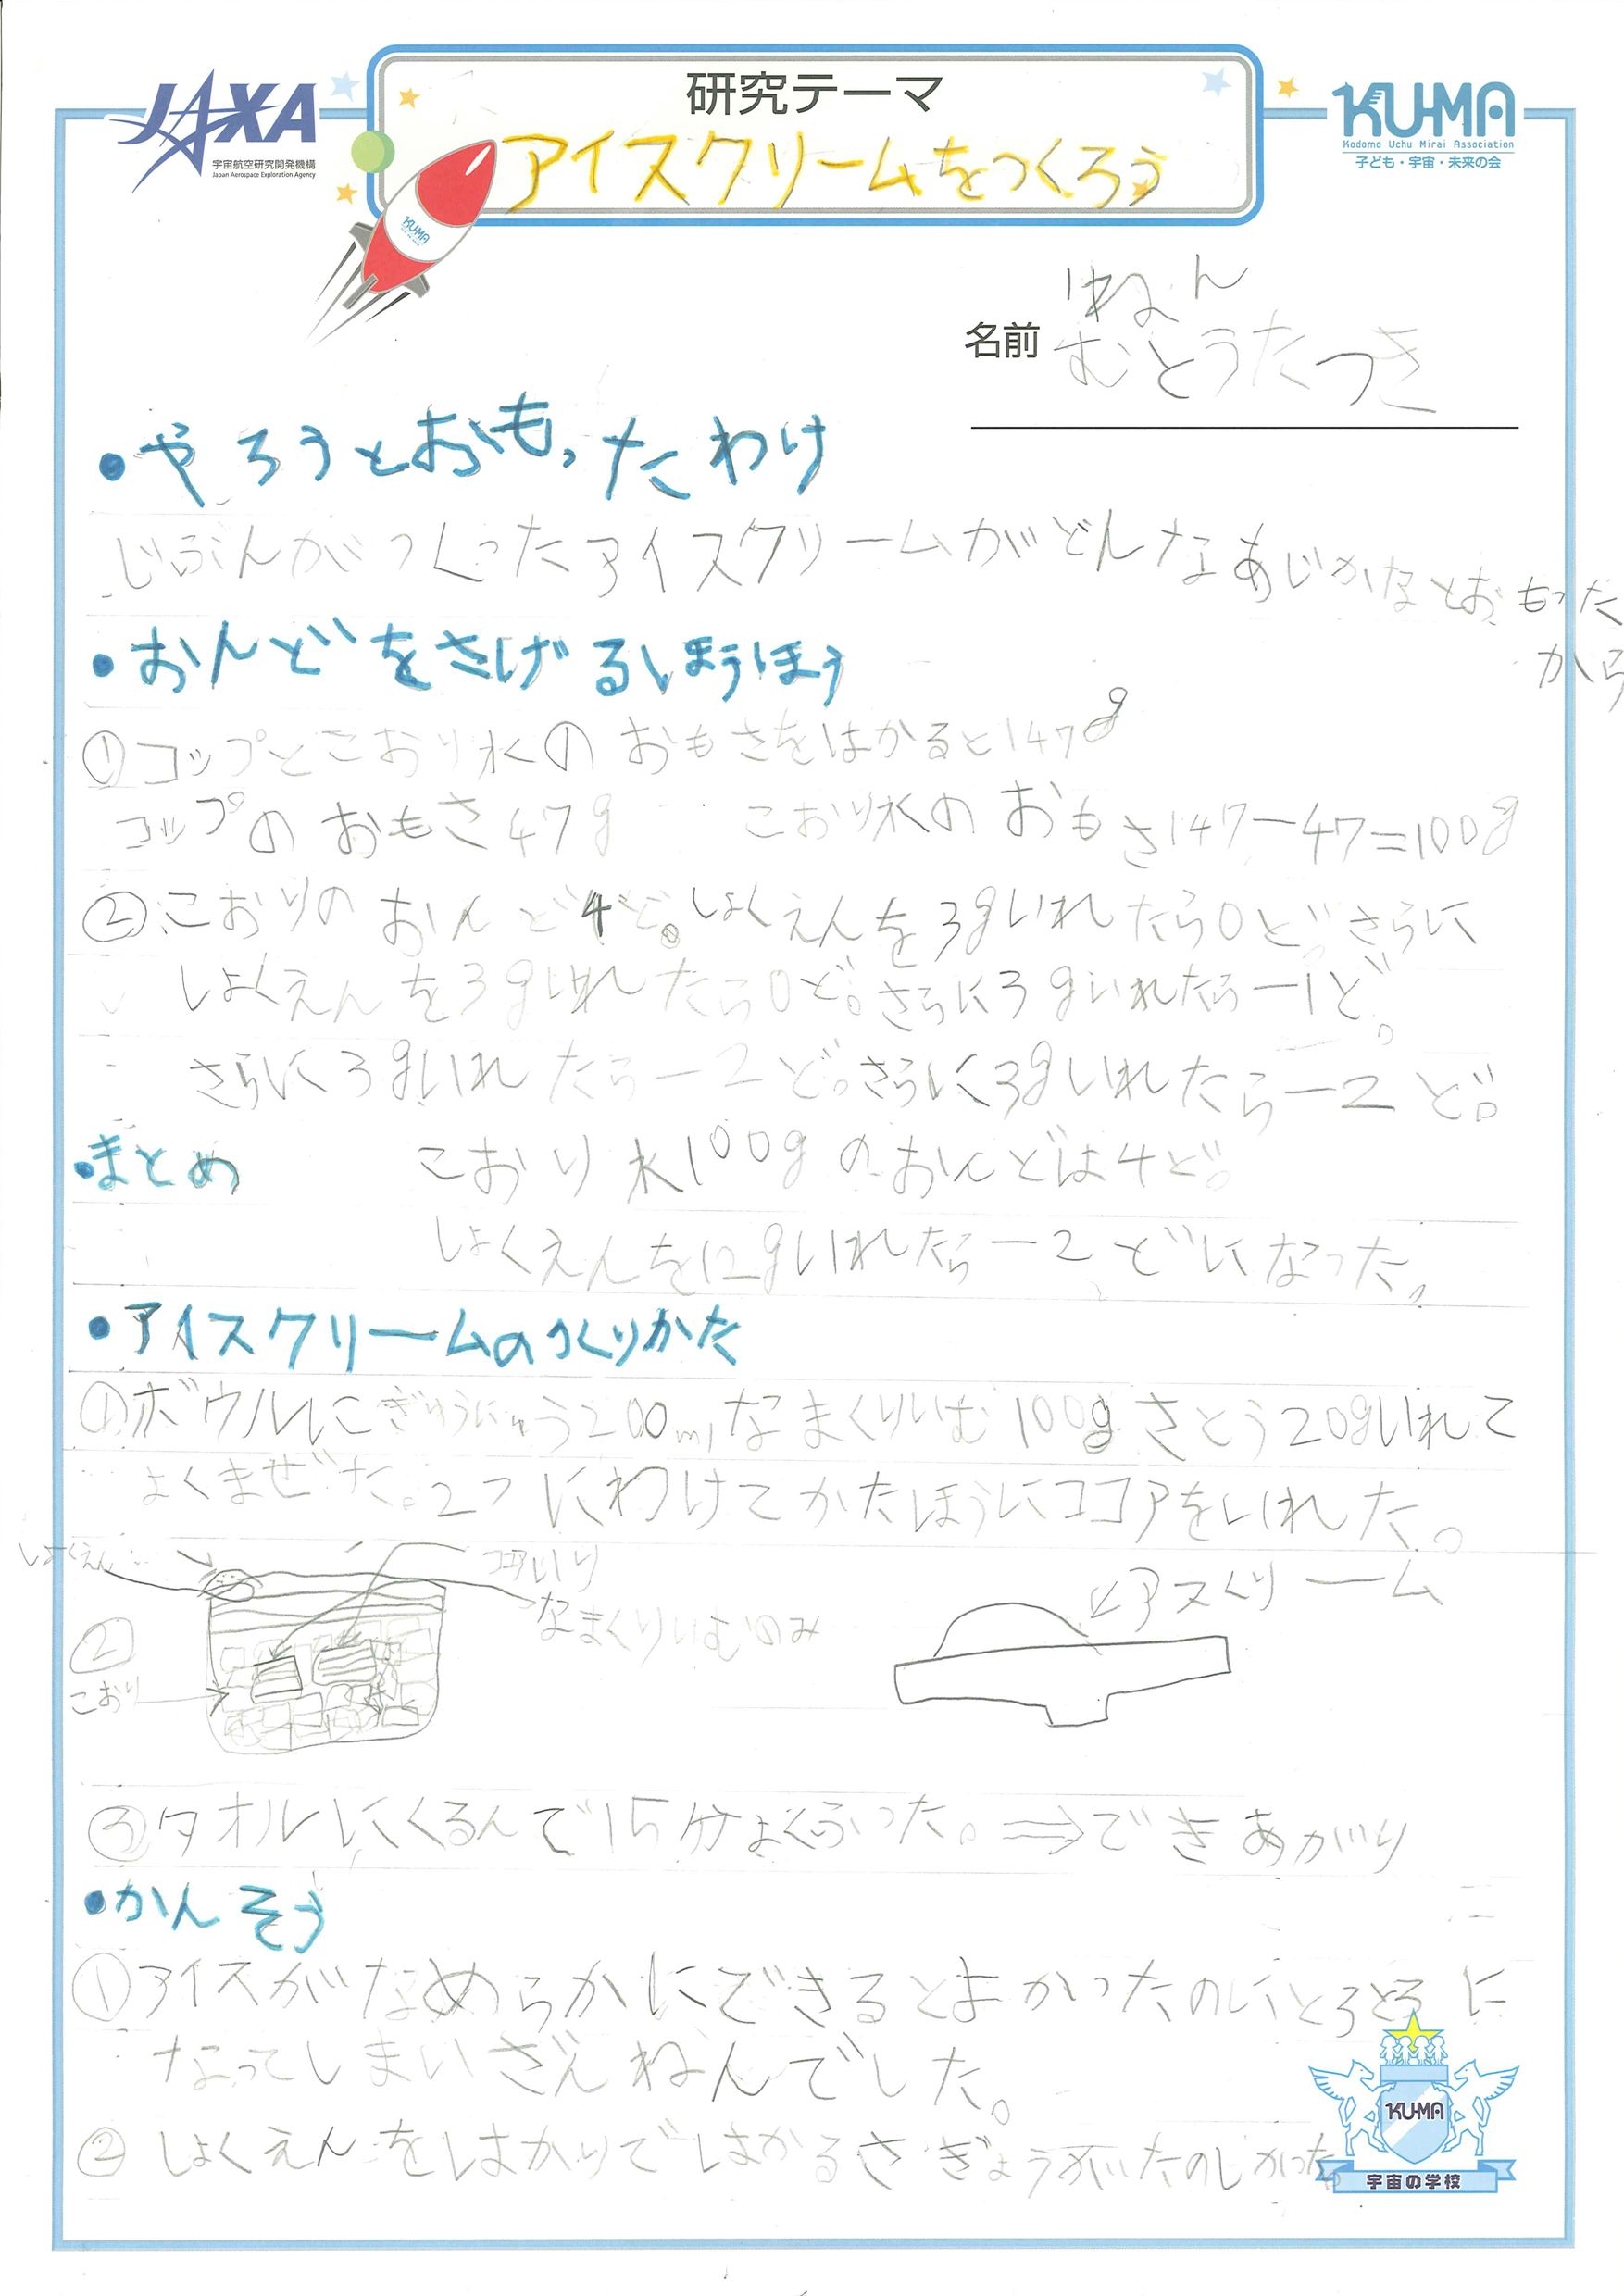 JAXA
宇宙航空研究開発機構
Japan Aerospace Exploration Agency
研究テーマ
アイスクリームをつくろう
KU-MA
Kodomo Uchu Mirai Association
子ども・宇宙・未来の会
KU-MA
1ねん
名前 むとうたつき
・やろうとおもったわけ
じぶんがつくったアイスクリームがどんなあじかなとおもった
から
・おんどをさげるほうほう
①コップとこおり水のおもさをはかると147g
コップのおもさ47g こおり水のおもさ147-47=100g
②こおりのおんど4ど。しょくえんを3gいれたら0ど。さらに
しょくえんを3gいれたら0ど。さらに3gいれたら-1ど。
さらに3gいれたら-2ど。さらに3gいれたら-2ど。
・まとめ こおり水100gのおんどは4ど。
しょくえんを12gいれたら-2どになった。
・アイスクリームのつくりかた
①ボウルにぎゅうにゅう200mlなまくりいむ100gさとう20gいれて
よくまぜた。2つにわけてかたほうにココアをいれた。
しょくえん
ココアいり
なまくりいむのみ
アスくリーム
②
こおり
③タオルにくるんで15分よくふった。⇒できあがり
・かんそう
①アイスがなめらかにできるとよかったのにとろとろに
なってしまいざんねんでした。
②しょくえんをはかりではかるさぎょうがたのしかった。
KU-MA
宇宙の学校